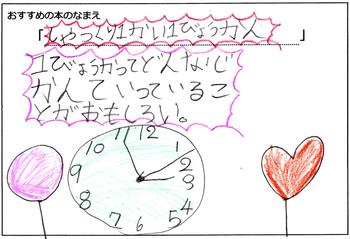 おすすめの本のなまえ
「しゃっくり1かい1びょうかん」
1びょうかってどんなじ
かんていっているこ
とがおもしろい。
11 12
10 1
9 2
3
8 4
7 6 5